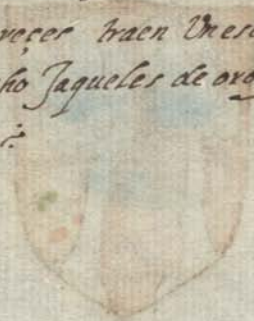 reçes traen Un es
ho Jaqueles de oro